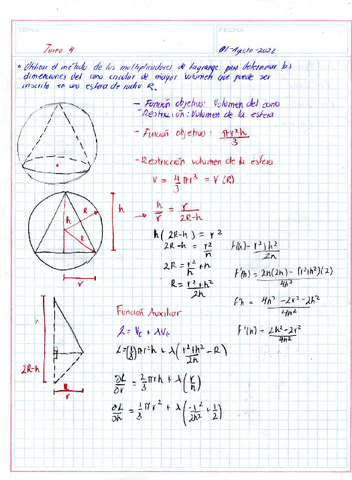 TEMA
FECHA
Tarea 4
01-Agosto-2022
• Utilizar el método de los multiplicadores de Lagrange para determinar las
dimensiones del cono circular de mayor volumen que puede ser
inscrito en una esfera de radio R.
- Función objetivo: Volumen del cono
- Restricción: Volumen de la esfera
- Función objetivo: πr²h/3
- Restricción volumen de la esfera
V = 4/3 πr³ = V(R)
h/r = r/(2R-h)
h(2R-h) = r²
2R-h = r²/h
2R = r²/h + h
R = r²+h²/2h
f(h) = r²+h²/2h
f'(h) = 2h(2h) - (r²+h²)(2)/4h²
f'h = 4h² - 2r² - 2h²/4h²
f'(h) = 2h² - 2r²/4h²
h
R
h
R
r
h
2R-h
R
r
Función Auxiliar
L = Vc + λVe
L = (1/3)πr²h + λ(r²+h²/2h - R)
∂L/∂r = 2/3 πrh + λ(r/h)
∂L/∂h = 1/3 πr² + λ(-r²/2h² + 1/2)